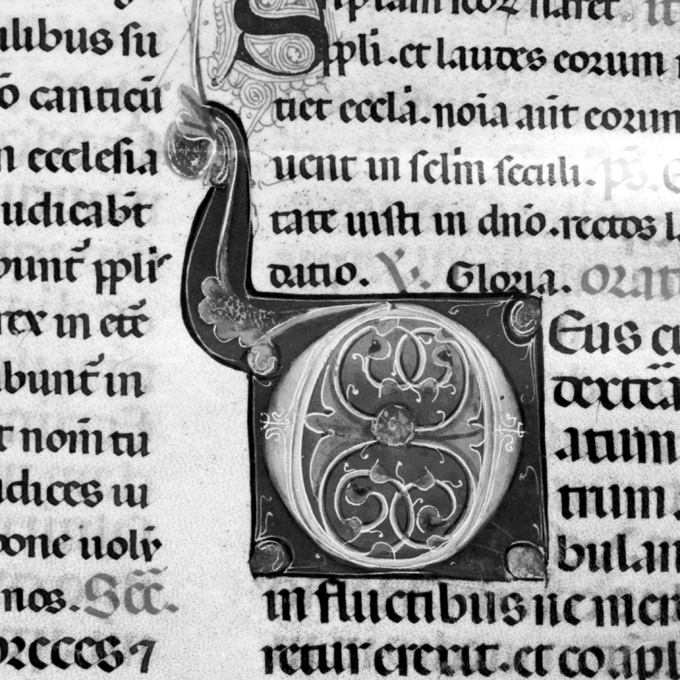 ilibus su
ō canticū
n ecclesia
udicabt̄
bunt̄ ppli
rex in etē
bunt̄ in
t nom̄ tu
udices iu
pone uoly
nos. Sēc.
preces ⁊
scoꝝ narēt.
ppli. et laudes eorum
tiet ecclā. noīa aūt eorum
uent in sclm̄ seculi. ps̄.
tate iusti in dnō. rectos l
datio. V. Gloria. orati
Eus cu
dexterā
.atum
trum
bulan
in fluctibus ne mer
retur erexit. et coapl